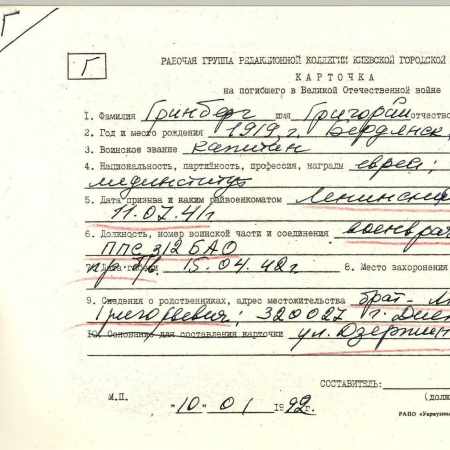 Г
РАБОЧАЯ ГРУППА РЕДАКЦИОННОЙ КОЛЛЕГИИ КИЕВСКОЙ ГОРОДСКОЙ
К А Р Т О Ч К А
на погибшего в Великой Отечественной войне
I. Фамилия Гринберг имя Григорий отчество
2. Год и место рождения 1919 г. Бердянск,
3. Воинское звание капитан
4. Национальность, партийность, профессия, награды еврей;
мединститут
5. Дата призыва и каким райвоенкоматом Ленинским
11.07.41г
6. Должность, номер воинской части и соединения военврач
ППС 312 БАО
7. Дата гибели пр. б/п. 15.04.42г 8. Место захоронения
9. Сведения о родственниках, адрес местожительства брат-
Григорьевич; 320027 г.
10. Основание для составления карточки ул. Дзержин
СОСТАВИТЕЛЬ:
(долж
М.П. "10" 01 1992г.
РАПО «Укрвузпол